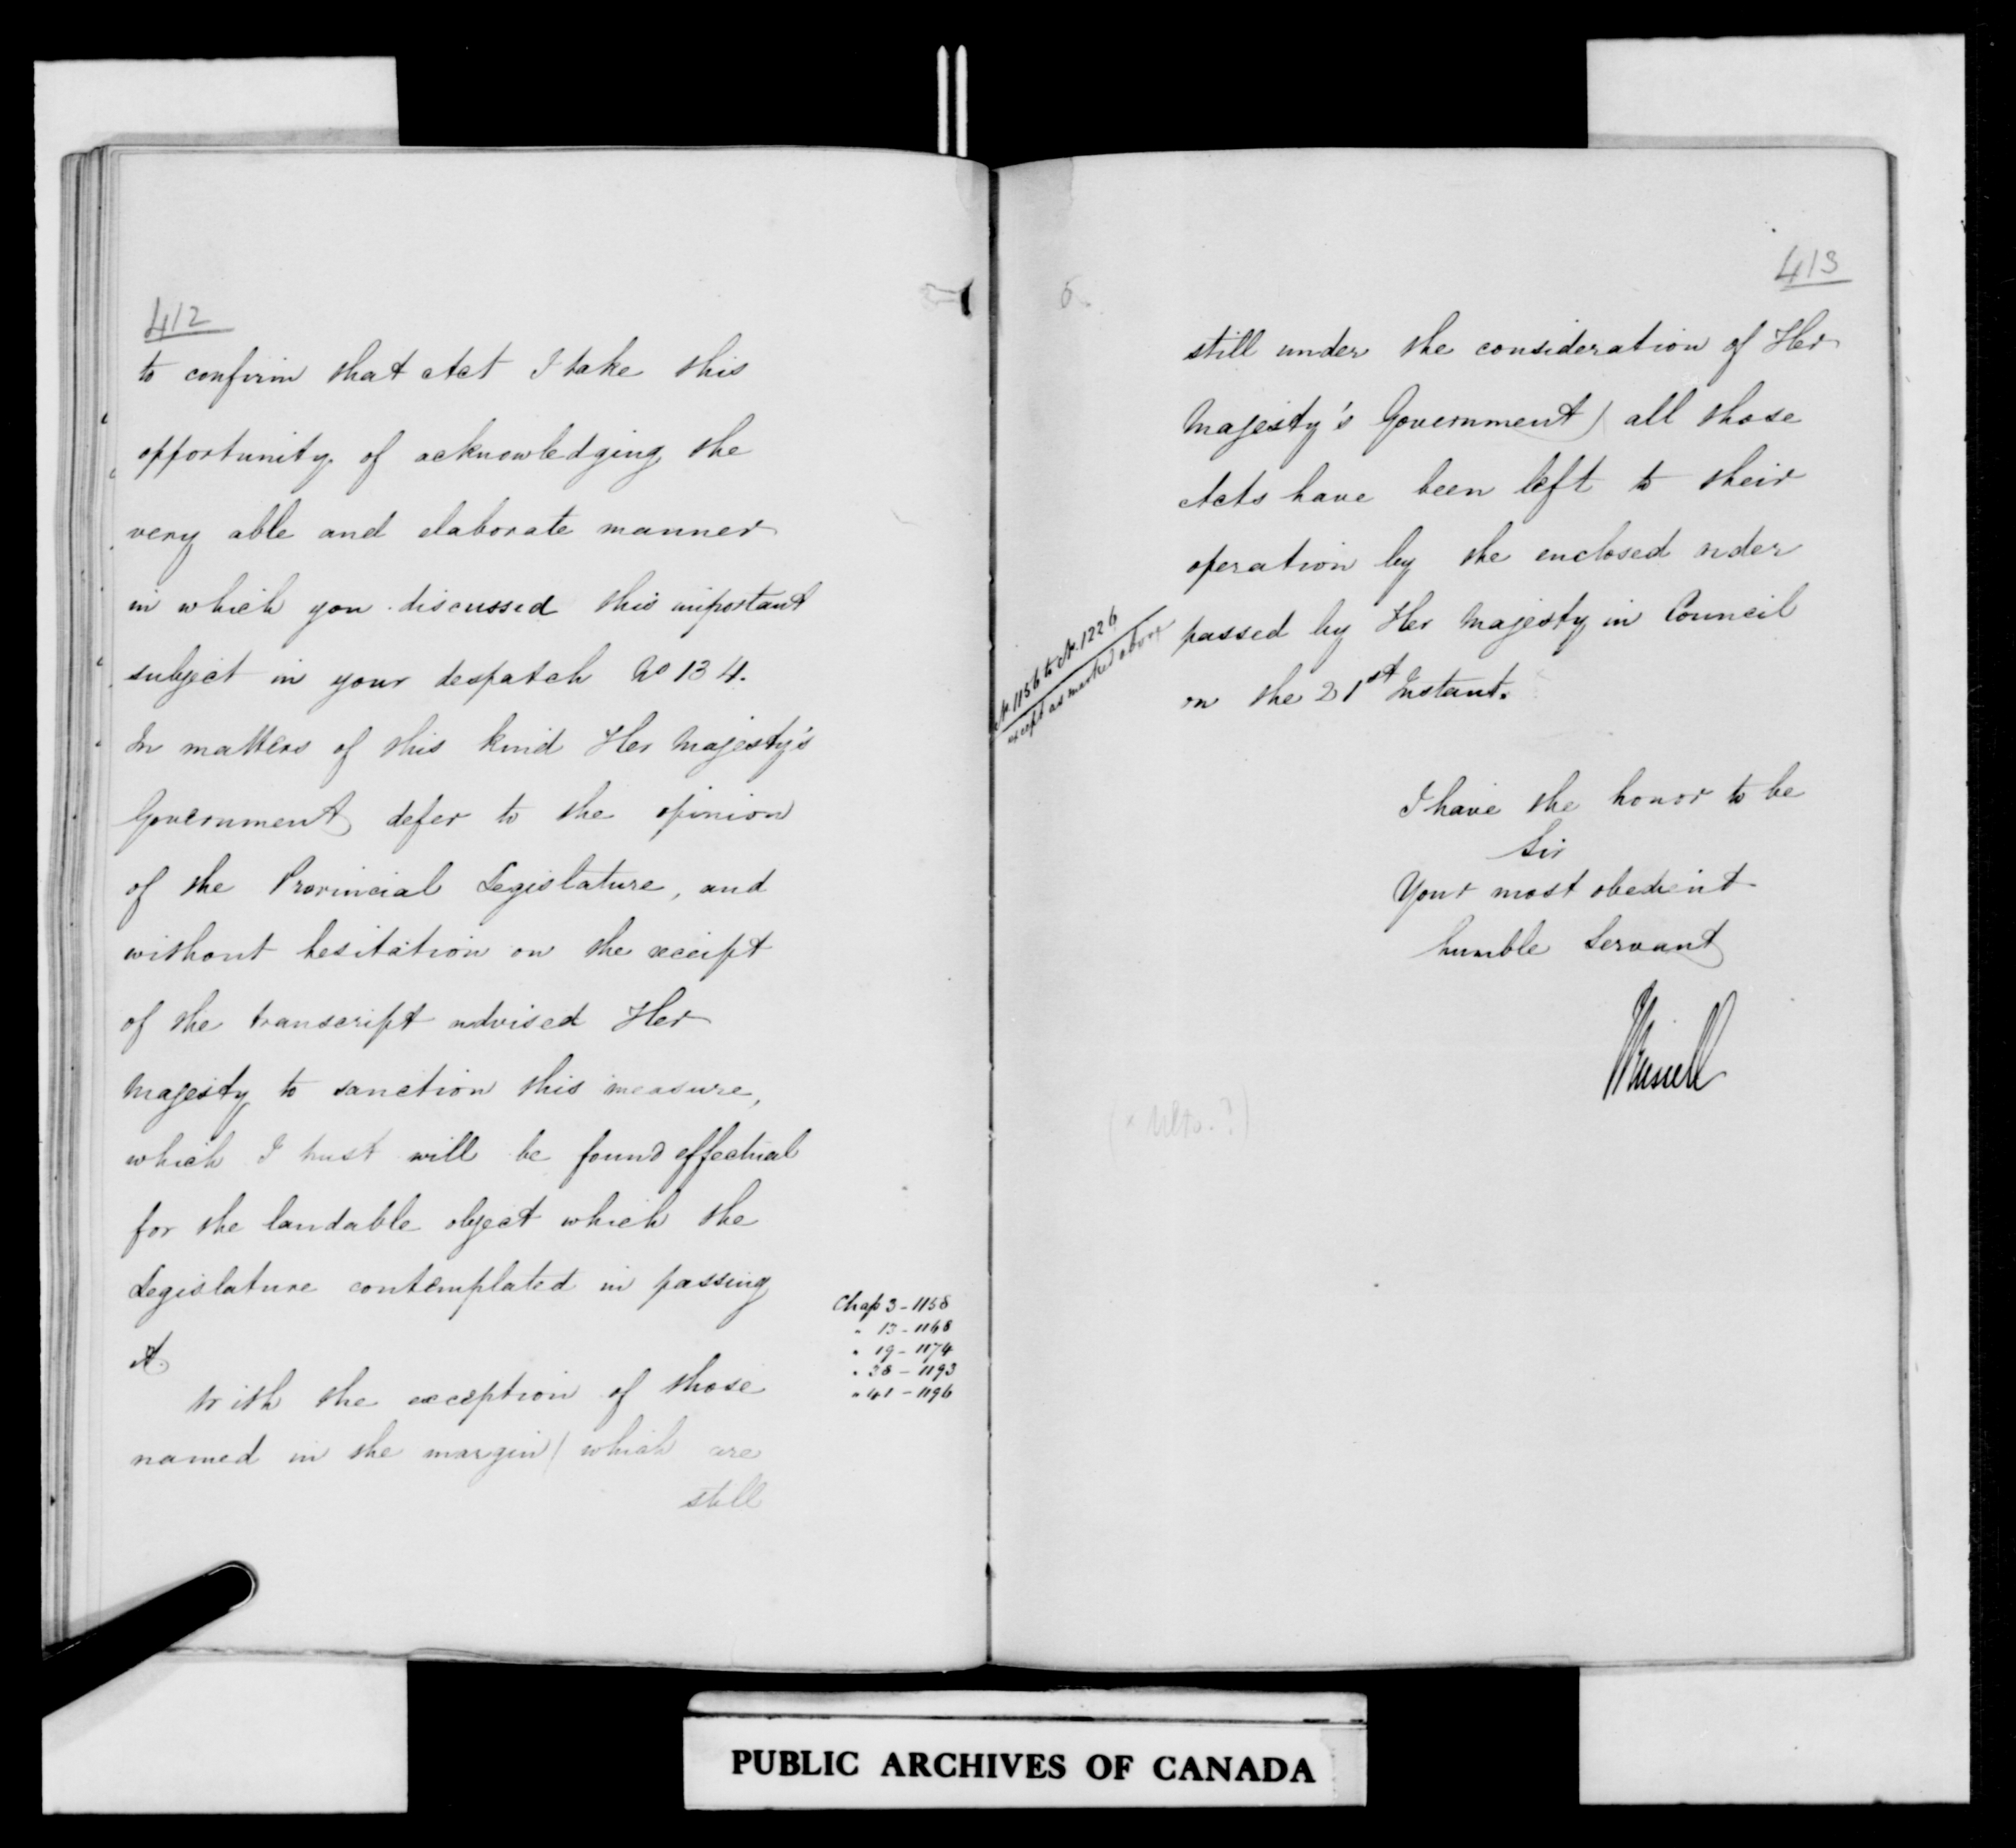 412
to confirm that Act I take this
opportunity of acknowledging the
very able and elaborate manner
in which you discussed this important
subject in your despatch No 134.
In matters of this kind Her Majesty's
Government defer to the opinion
of the Provincial Legislature, and
without hesitation on the receipt
of the transcript advised Her
Majesty to sanction this measure,
which I trust will be found effectual
for the laudable object which the
Legislature contemplated in passing
it.
With the exception of those
named in the margin (which are
still
Chap 3 - 1158
" 13 - 1168
" 19 - 1174
" 38 - 1193
" 41 - 1196
413
still under the consideration of Her
Majesty's Government) all those
Acts have been left to their
operation by the enclosed order
passed by Her Majesty in Council
on the 21st Instant.
No. 1156 to No. 1226
except as marked above
I have the honor to be
Sir
Your most obedient
humble Servant
JRussell
PUBLIC ARCHIVES OF CANADA